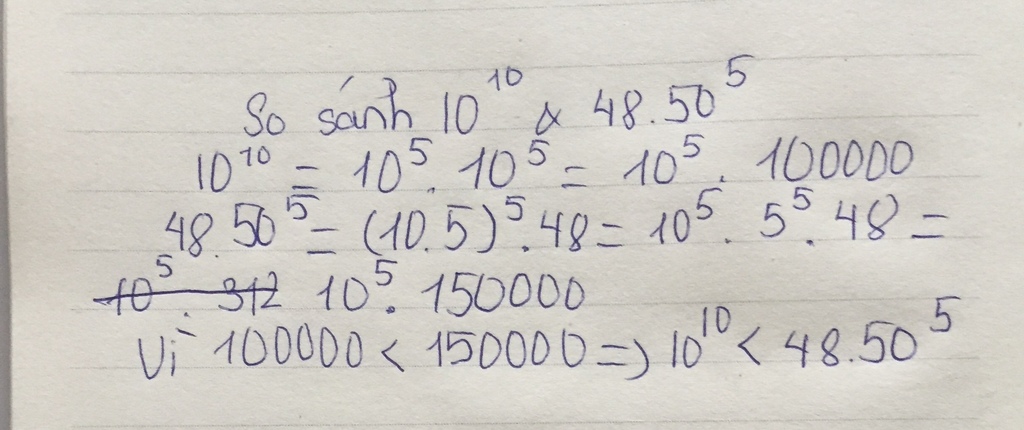 So sánh 10¹⁰ & 48.50⁵
10¹⁰ = 10⁵. 10⁵ = 10⁵. 100000
48.50⁵ = (10.5)⁵.48 = 10⁵. 5⁵. 48 =
10⁵. 312 10⁵. 150000
Vì 100000 < 150000 => 10¹⁰ < 48.50⁵